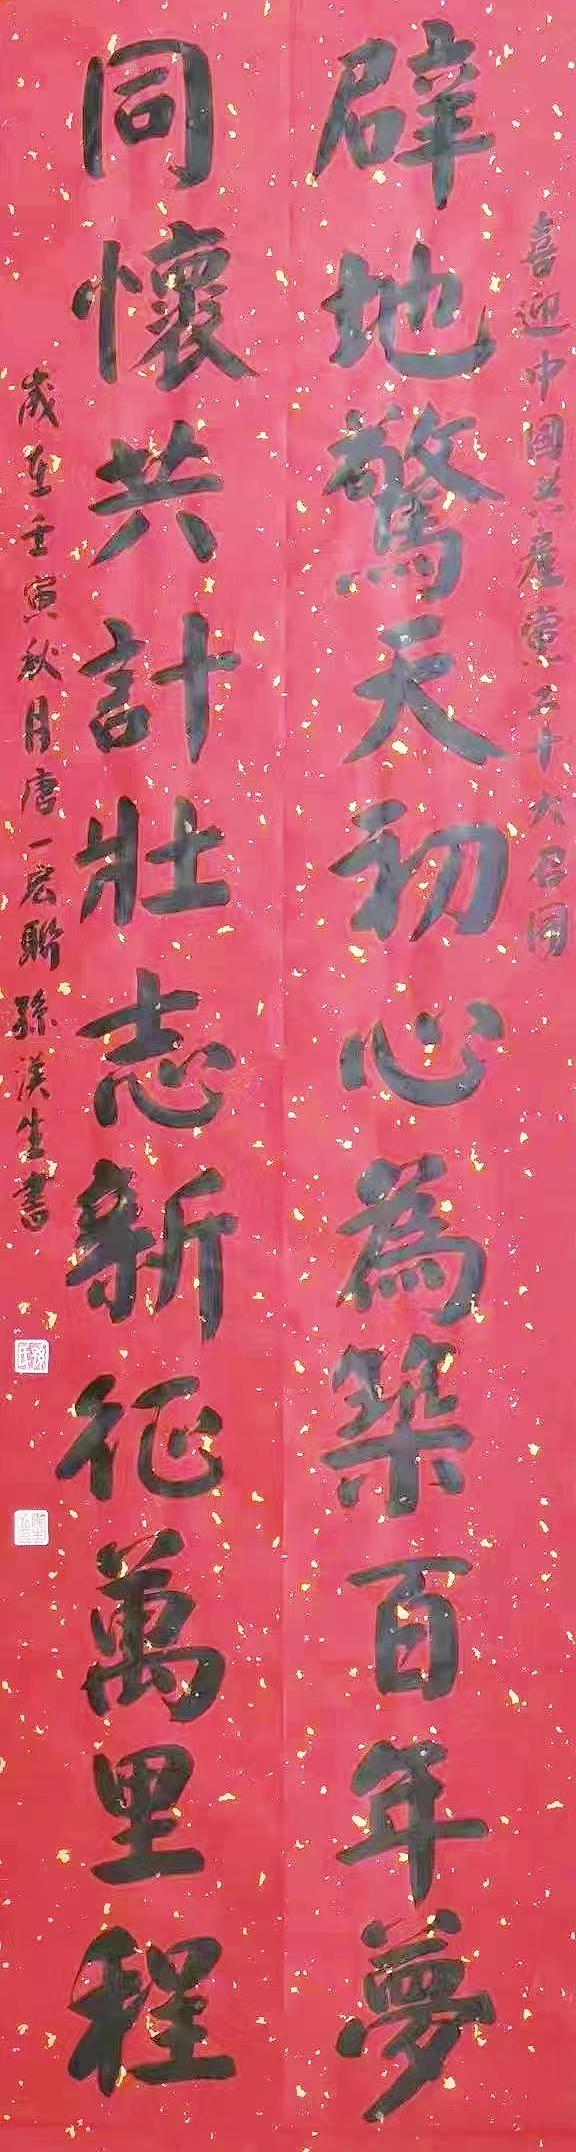 喜迎中國共產黨二十大召開
辟地驚天初心為築百年夢
同懷共計壯志新征萬里程
歲在壬寅秋月唐一宏聯孫漢生書